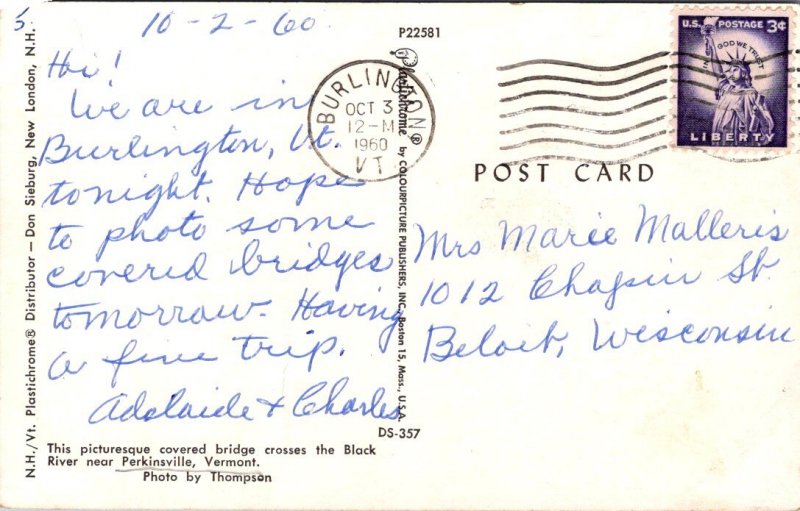 5.
10-2-60
P22581
Hi!
We are in
Burlington, Vt.
tonight. Hope
to photo some
covered bridges
tomorrow. Having
a fine trip.
Adelaide & Charles
This picturesque covered bridge crosses the Black
River near Perkinsville, Vermont.
Photo by Thompson
N.H./Vt. Plastichrome® Distributor — Don Sieburg, New London, N.H.
Plastichrome ® by COLOURPICTURE PUBLISHERS, INC. Boston 15, Mass., U.S.A.
DS-357
BURLINGTON
OCT 3
12-M
1960
VT
U.S. POSTAGE 3¢
IN GOD WE TRUST
LIBERTY
POST CARD
Mrs Marie Malleris
1012 Chapin St.
Beloit, Wisconsin